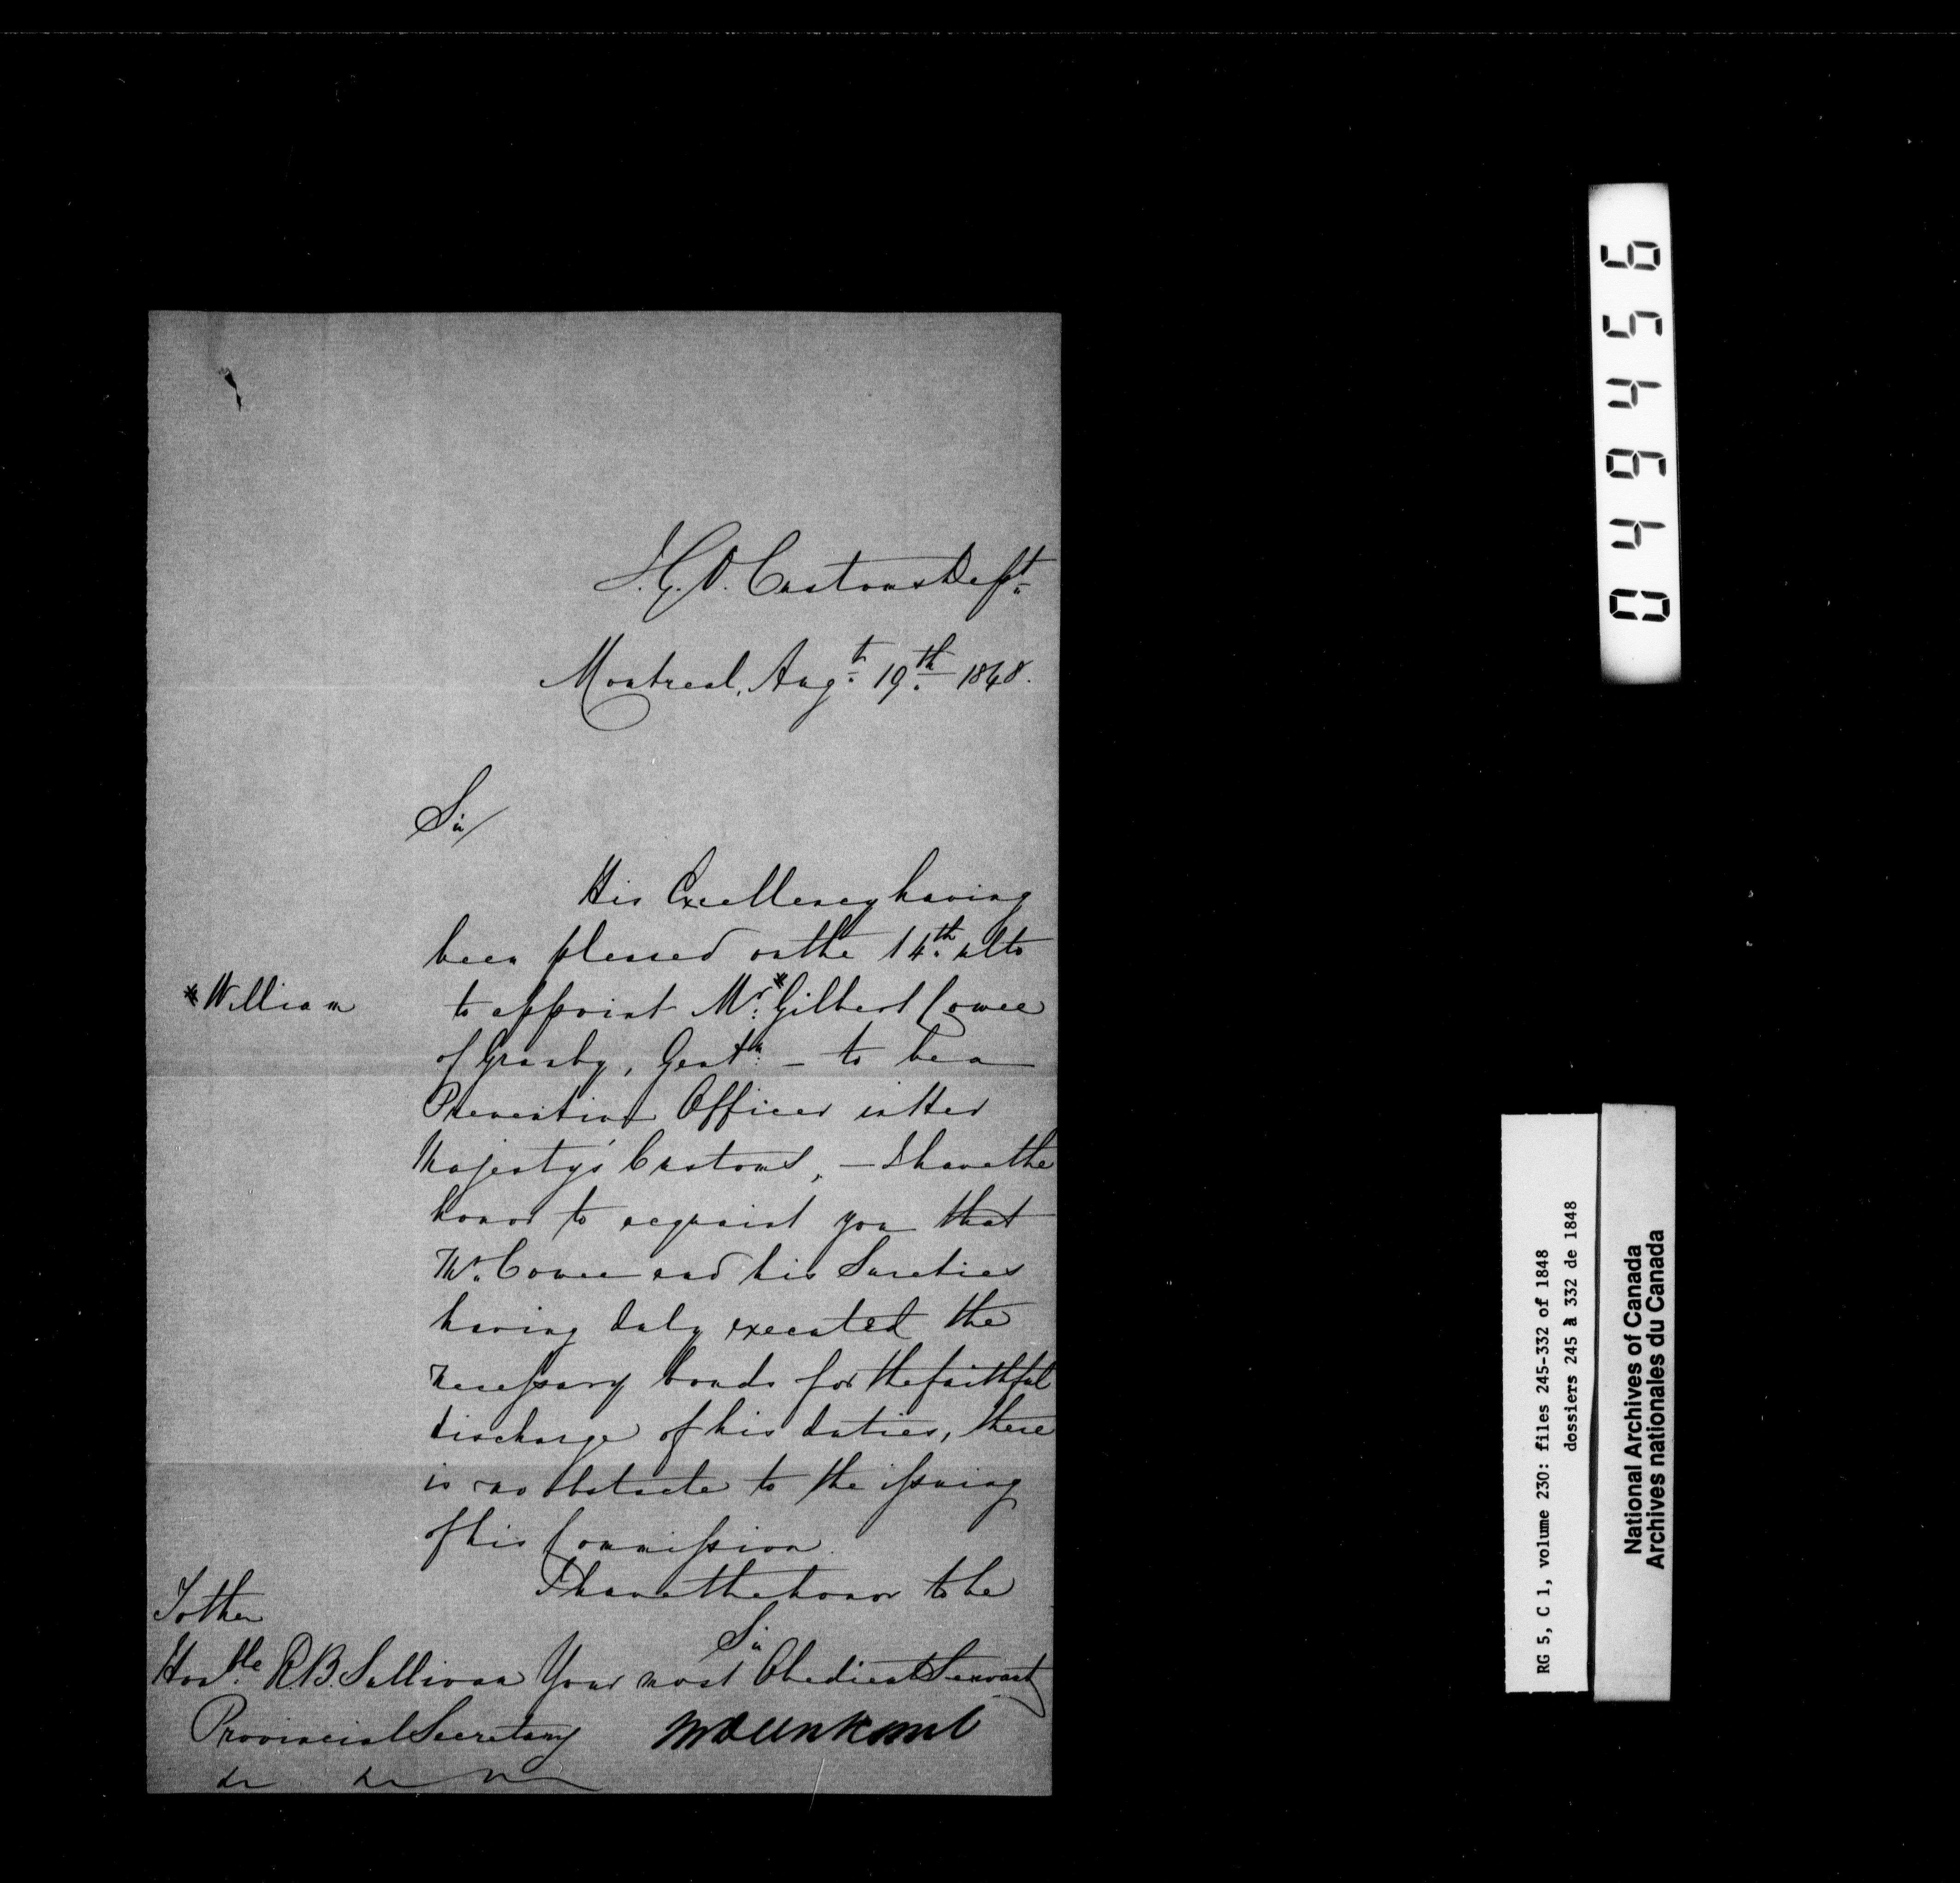 I.G.O. Customs Dept.
Montreal, Augt. 19th. 1848.
Sir/
His Excellency having
been pleased on the 14th. ulto
*William
to appoint Mr.* Gilbert Cowee
of Granby, Gentn. – to be a
Preventive Officer in Her
Majesty's Customs, – I have the
honor to acquaint you that
Mr. Cowee and his Sureties
having duly executed the
necessary bonds for the faithful
discharge of his duties, there
is no obstacle to the issuing
of his Commission.
I have the honor to be
Sir
Your most Obedient Servant
To the
Honble. R.B. Sullivan
Provincial Secretary
049456
RG 5, C 1, volume 230: files 245-332 of 1848
dossiers 245 à 332 de 1848
National Archives of Canada
Archives nationales du Canada